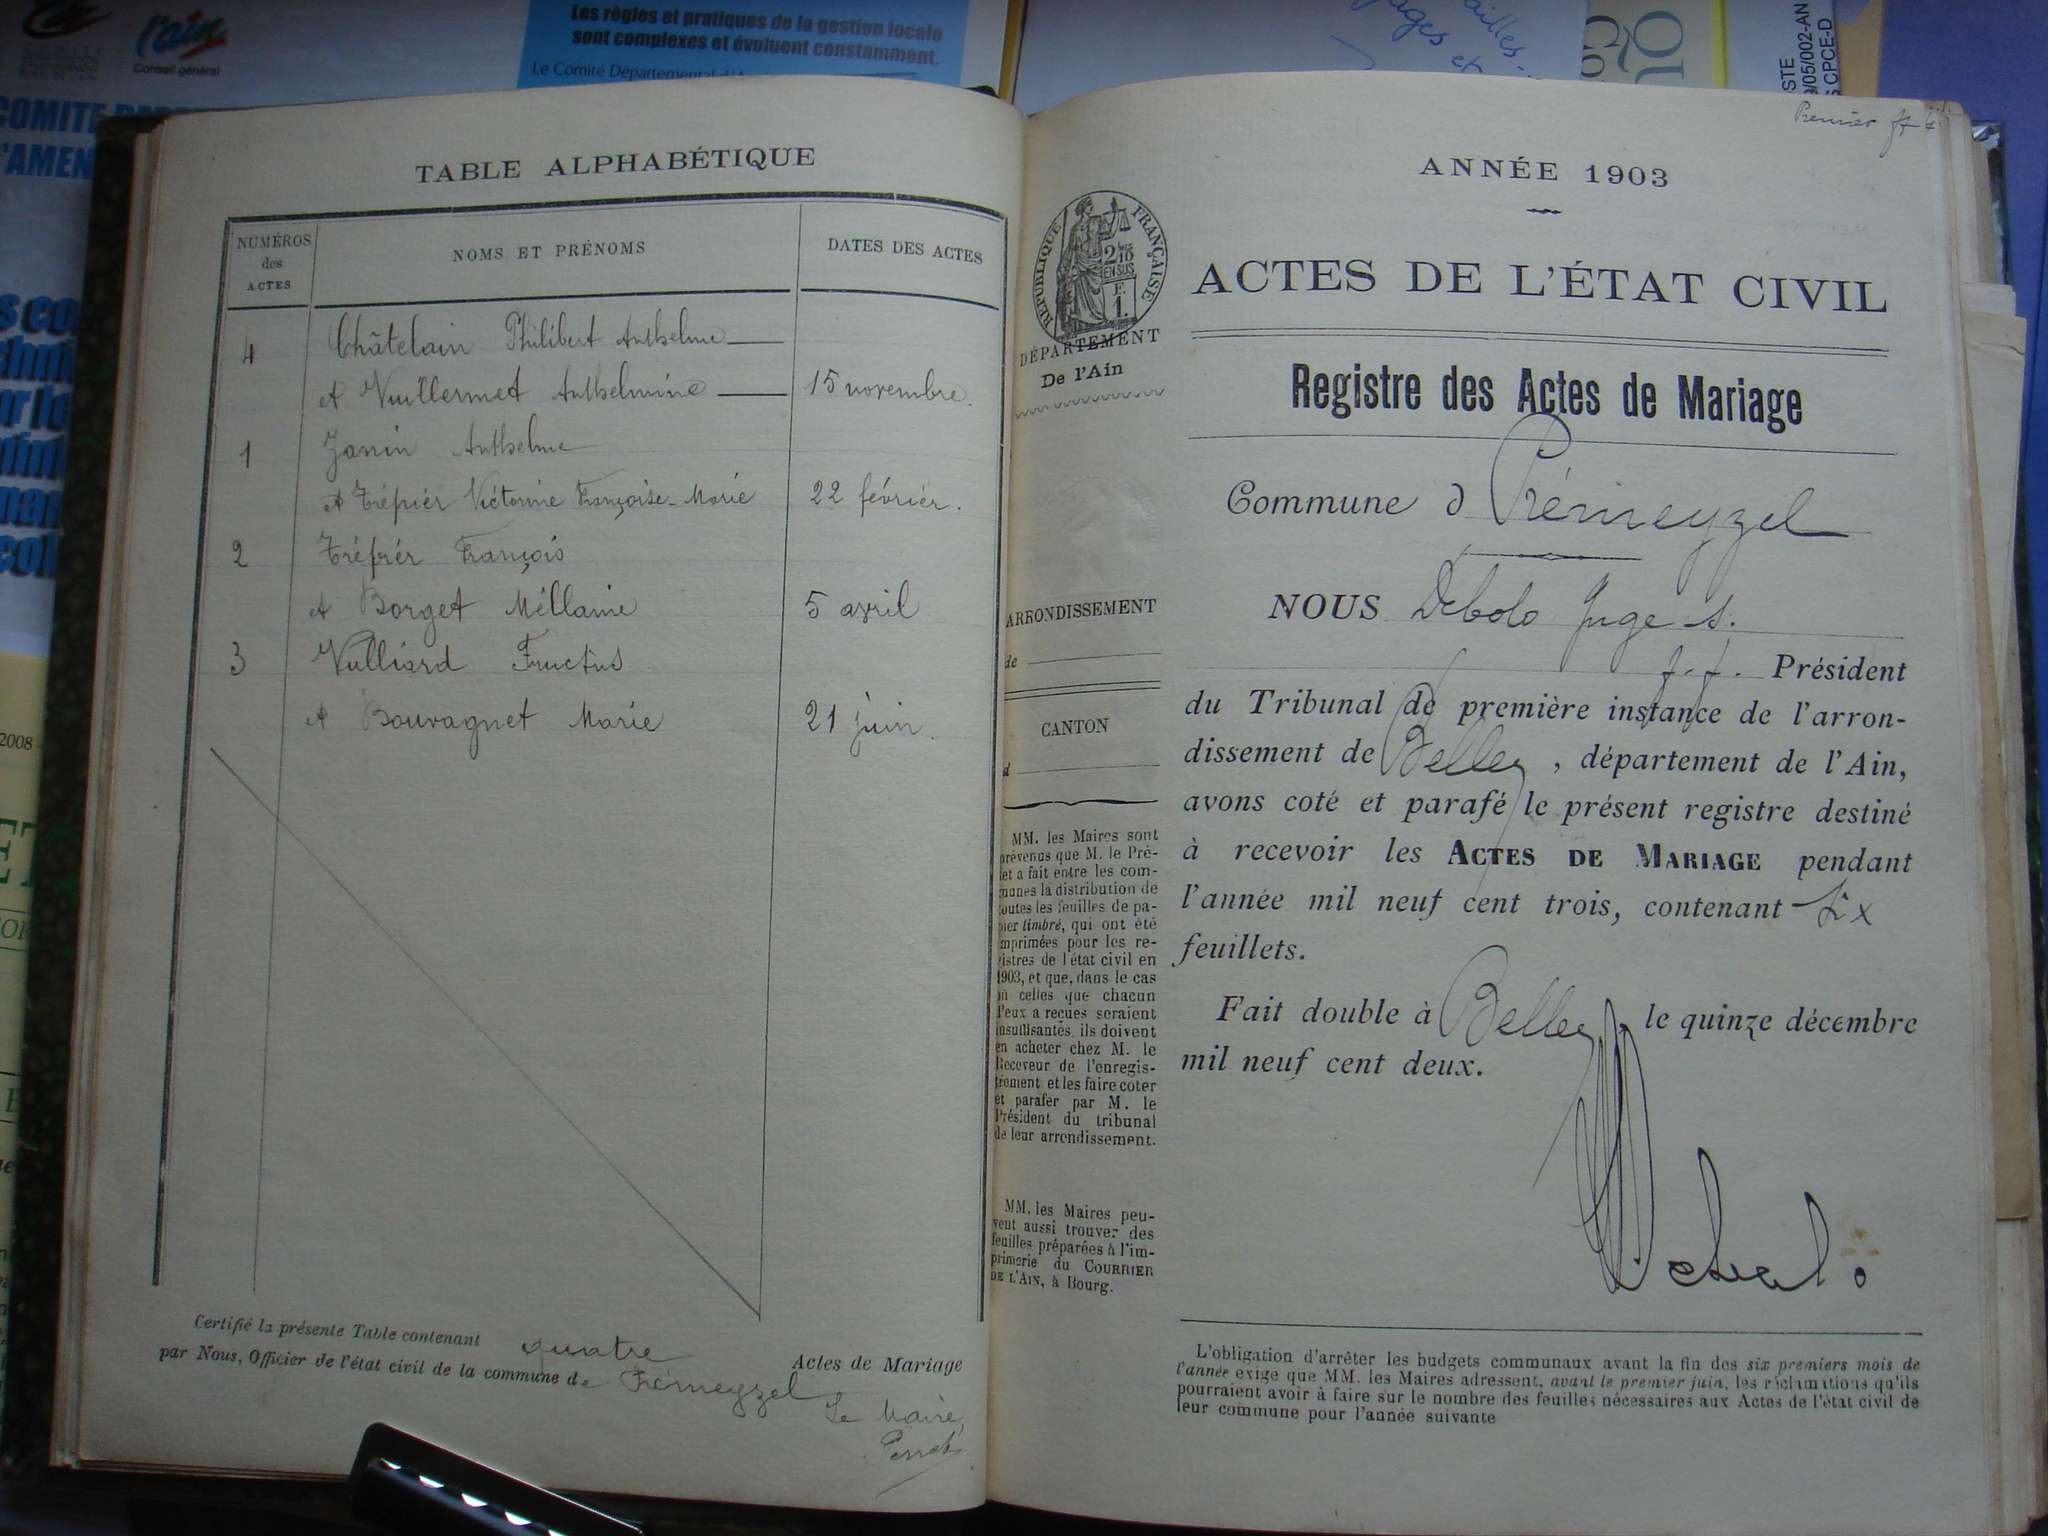 l'ain
Conseil général
Les règles et pratiques de la gestion locale
sont complexes et évoluent constamment.
Le Comité Départemental
TABLE ALPHABÉTIQUE
NUMÉROS des ACTES
NOMS ET PRÉNOMS
DATES DES ACTES
4 Châtelain Philibert Anthelme
et Vuillermet Anthelmine 15 novembre.
1 Janin Anthelme
et Trépier Victorine Françoise-Marie 22 février.
2 Trépier François
et Borget Méllanie 5 avril
3 Vulliard Fructus
et Bouvagnet Marie 21 juin.
Certifié la présente Table contenant quatre Actes de Mariage
par Nous, Officier de l'état civil de la commune de Prémeyzel
Le Maire,
Premier
ANNÉE 1903
RÉPUBLIQUE FRANÇAISE
2/10 EN SUS
F. 1.
DÉPARTEMENT
De l'Ain
ARRONDISSEMENT
de
CANTON
d
MM. les Maires sont
prévenus que M. le Pré-
fet a fait entre les com-
munes la distribution de
toutes les feuilles de pa-
pier timbré, qui ont été
imprimées pour les re-
gistres de l'état civil en
1903, et que, dans le cas
où celles que chacun
d'eux a reçues seraient
insuffisantes, ils doivent
en acheter chez M. le
Receveur de l'enregis-
trement et les faire coter
et parafer par M. le
Président du tribunal
de leur arrondissement.
MM. les Maires peu-
vent aussi trouver des
feuilles préparées à l'im-
primerie du COURRIER
DE L'AIN, à Bourg.
ACTES DE L'ÉTAT CIVIL
Registre des Actes de Mariage
Commune d Prémeyzel
NOUS Debolo Juge s.
f.f. Président
du Tribunal de première instance de l'arron-
dissement de Belley, département de l'Ain,
avons coté et parafé le présent registre destiné
à recevoir les ACTES DE MARIAGE pendant
l'année mil neuf cent trois, contenant six
feuillets.
Fait double à Belley, le quinze décembre
mil neuf cent deux.
L'obligation d'arrêter les budgets communaux avant la fin des six premiers mois de
l'année exige que MM. les Maires adressent, avant le premier juin, les réclamations qu'ils
pourraient avoir à faire sur le nombre des feuilles nécessaires aux Actes de l'état civil de
leur commune pour l'année suivante